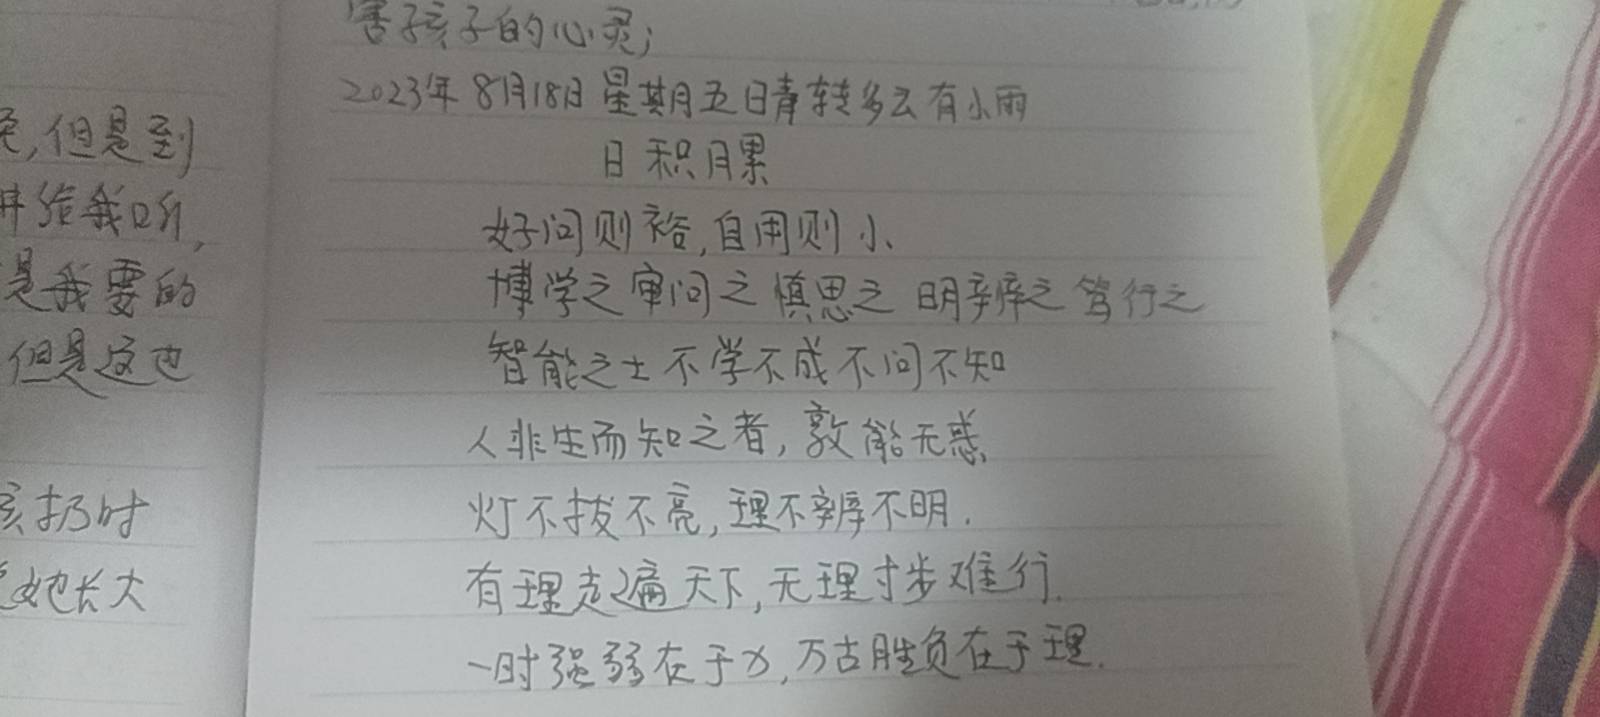 免,但是到
给我听,
是我要的
但是这也
孩扔时
她长大
害孩子的心灵;
2023年8月18日 星期五 晴转多云有小雨
日积月累
好问则裕,自用则小、
博学之审问之 慎思之 明辨之 笃行之
智能之士不学不成不问不知
人非生而知之者,孰能无惑、
灯不拔不亮,理不辨不明.
有理走遍天下,无理寸步难行.
一时强弱在于力,万古胜负在于理.